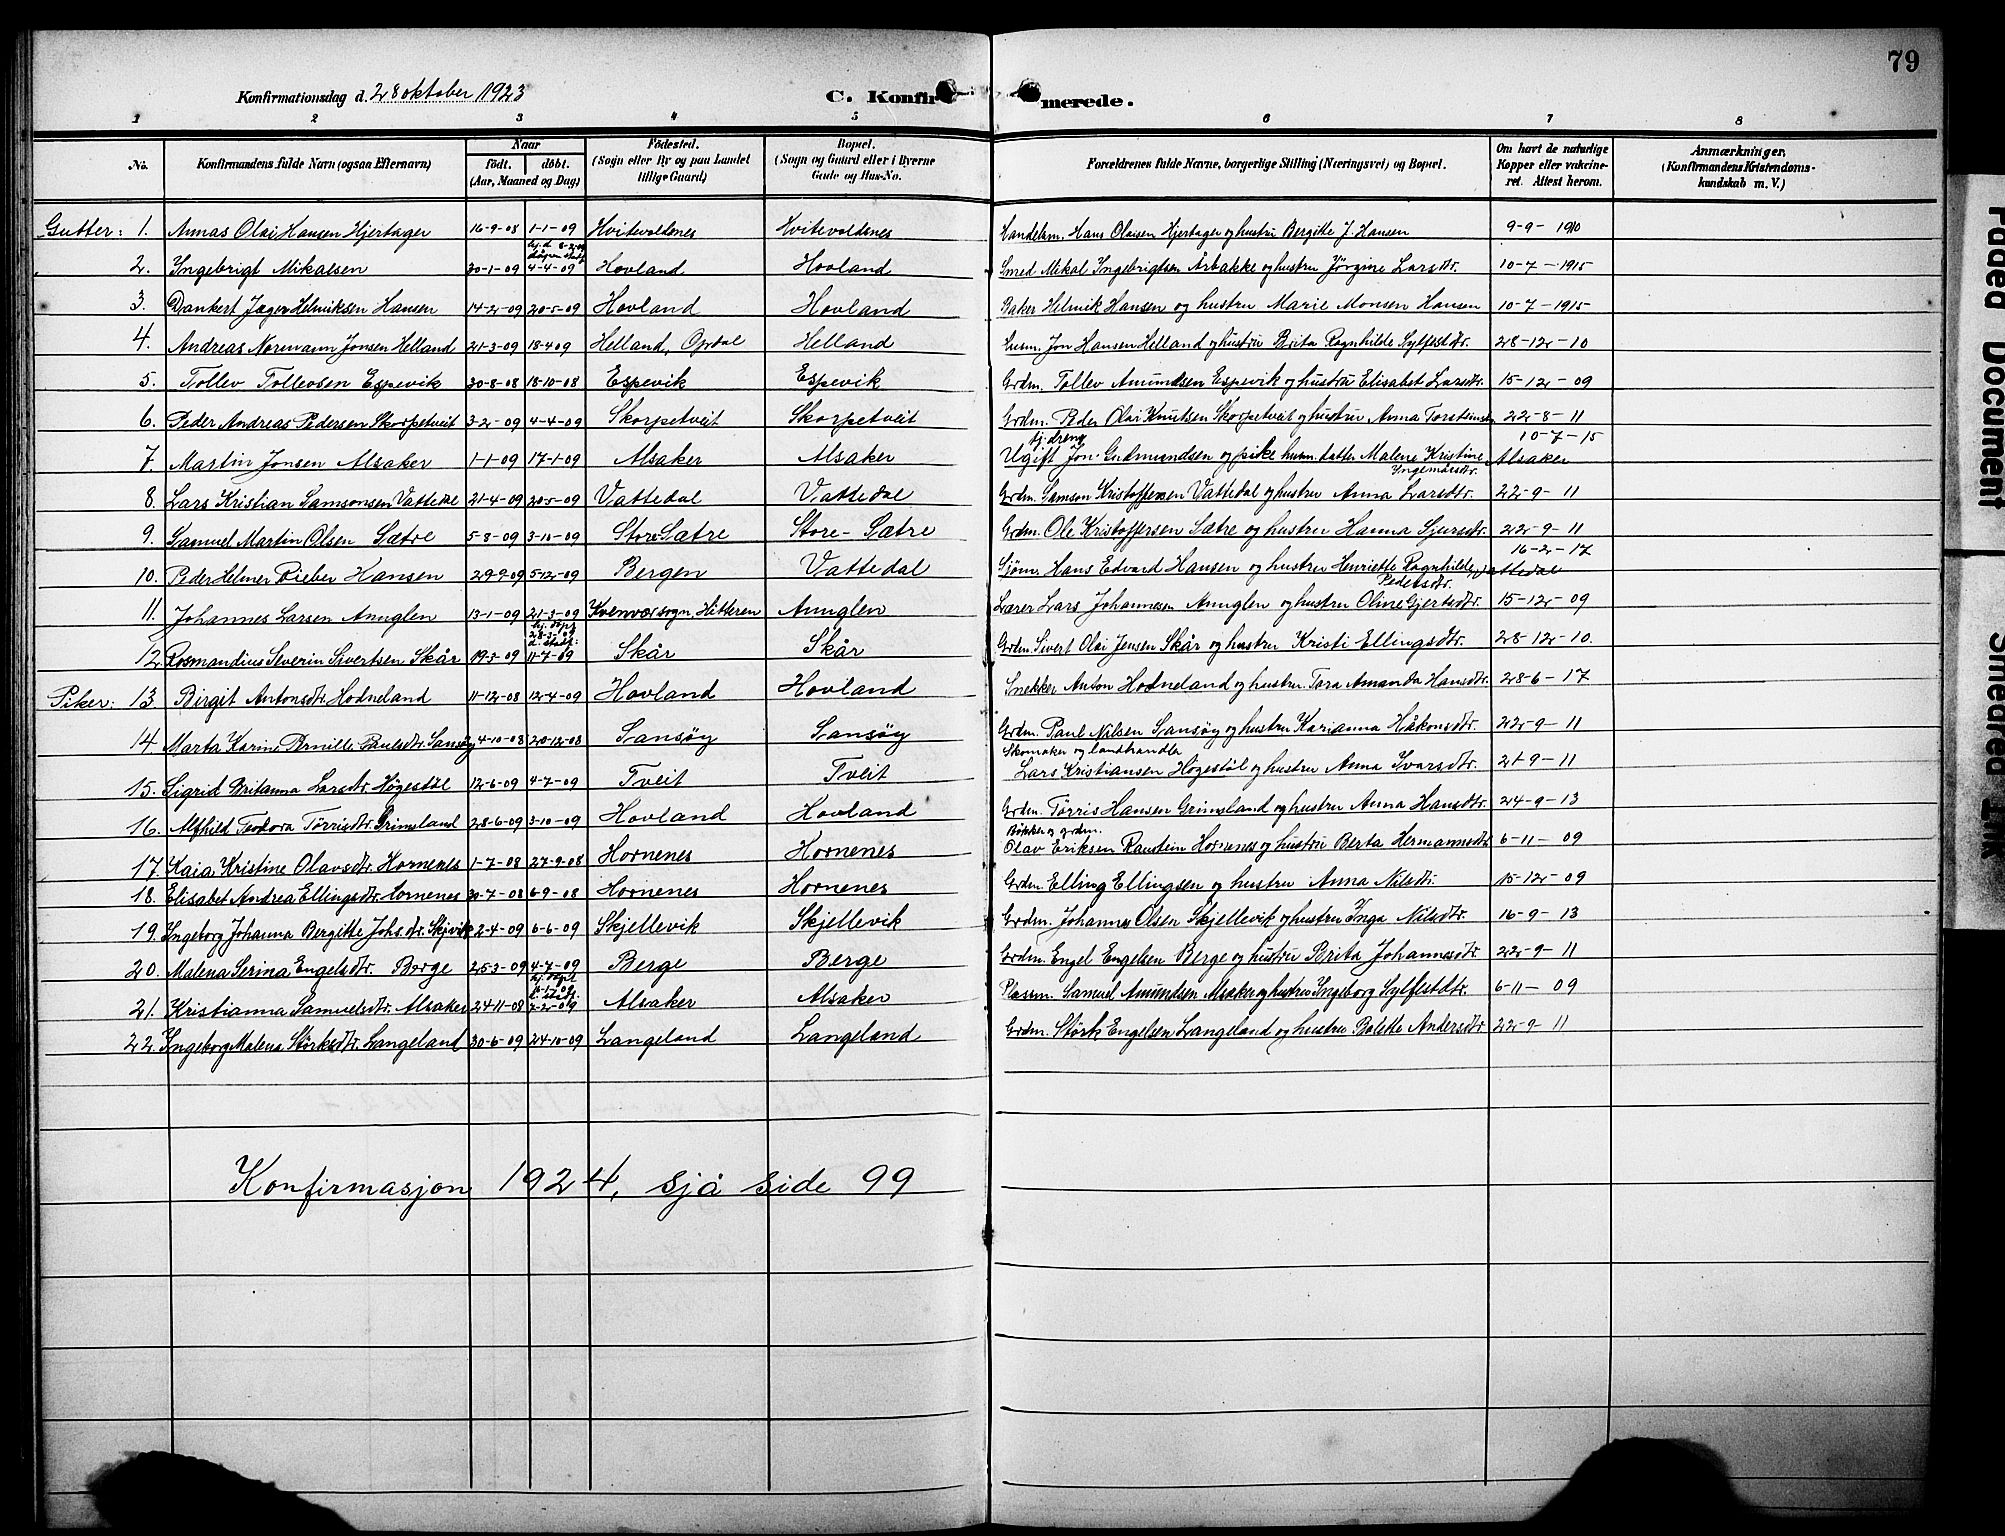 79
Konfirmationsdag d. 28 oktober 1923 C. Konfirmerede.
1 2 3 4 5 6 7 8
No. Konfirmandens fulde Navn (ogsaa Efternavn) Naar født. døbt. (Aar, Maaned og Dag) Fødested. (Sogn eller By og paa Landet tillige Gaard) Bopæl. (Sogn og Gaard eller i Byerne Gade og Hus-No. Forældrenes fulde Navne, borgerlige Stilling (Næringsvei) og Bopæl. Om havt de naturlige Kopper eller vakcineret. Attest herom. Anmærkninger, (Konfirmandens Kristendomskundskab m. V.)
Gutter: 1. Annas Olai Hansen Hjertager 16-9-08 1-1-09 Hvitevoldenes Hvitevoldenes Handelsm. Hans Olaisen Hjertager og hustru Bergitte J. Hansen 9-9-1910
2. Ingebrigt Mikalsen 30-1-09 hj.d. 8-2-09 4-4-09 Hovland Hovland Smed Mikal Ingebrigtsen Årbakke og hustru Jørgine Larsdtr. 10-7-1915
3. Dankert Jæger Helmiksen Hansen 14-2-09 20-5-09 Hovland Hovland Baker Helmik Hansen og hustru Marie Monsen Hansen 10-7-1915
4. Andreas Normann Jonsen Helland 21-3-09 18-4-09 Helland, Opdal Helland Jon Hansen Helland og hustru Brita Ragnhilde Sylfestdtr. 28-12-10
5. Tollev Tollevsen Espevik 30-8-08 18-10-08 Espevik Espevik Grdm. Tollev Amundsen Espevik og hustru Elisabet Larsdtr. 15-12-09
6. Peder Andreas Pedersen Skorpetveit 3-2-09 4-4-09 Skorpetveit Skorpetveit Grdm. Peder Olai Knutsen Skorpetveit og hustru Anna Torsteinsdtr. 22-8-11
7. Martin Jonsen Alsaker 1-1-09 17-1-09 Alsaker Alsaker Ugift tj.dreng Jon Gudmundsen og pike husm. datter Malene Kristine Ingemarsdtr. Alsaker 10-7-15
8. Lars Kristian Samsonsen Vattedal 21-4-09 20-5-09 Vattedal Vattedal Grdm. Samson Kristoffersen Vattedal og hustru Anna Larsdtr. 22-9-11
9. Samuel Martin Olsen Sætre 5-8-09 3-10-09 Store Sætre Store-Sætre Grdm. Ole Kristoffersen Sætre og hustru Hanna Sjursdtr. 22-9-11
10. Peder Helmer Rieber Hansen 29-9-09 5-12-09 Bergen Vattedal Sjøm. Hans Edvard Hansen og hustru Henriette Ragnhilde Pedersdtr. Vattedal 16-2-17
11. Johannes Larsen Annglen 13-1-09 21-3-09 Kvenvær sogn, Hitteren Annglen Lærer Lars Johannesen Annglen og hustru Oline Gjertsdtr. 15-12-09
12. Rosmandius Severin Sivertsen Skår 19-3-09 hj. døpt 28-3-09 11-7-09 Skår Skår Grdm. Sivert Olai Jensen Skår og hustru Kristi Ellingsdtr. 28-12-10.
Piker: 13. Birgit Antonsdtr. Hodneland 11-12-08 12-4-09 Hovland Hovland Snekker Anton Hodneland og hustru Tora Amanda Hansdtr. 28-6-17
14. Marta Karine Pernille Paulsdtr. Sansøy 4-10-08 20-12-08 Sansøy Sansøy Grdm. Paul Nilsen Sansøy og hustru Karianna Håkonsdtr. 22-9-11
15. Sigrid Britanna Larsdtr. Høgestøl 12-6-09 4-7-09 Tveit Tveit Skomaker og landhandler Lars Kristiansen Høgestøl og hustru Anna Ivarsdtr. 21-9-11
16. Alfhild Teodora Tørrisdtr. Grimsland 28-6-09 3-10-09 Hovland Hovland Grdm. Tørris Hansen Grimsland og hustru Anna Hansdtr. 24-9-13
17. Kaia Kristine Olavsdtr. Hornenes 1-7-08 27-9-08 Hornenes Hornenes Bøkker og grdm. Olav Eriksen Raustein Hornenes og hustru Berta Hermannsdtr. 6-11-09
18. Elisabet Andrea Ellingsdtr. Hornenes 30-7-08 6-9-08 Hornenes Hornenes Grdm. Elling Ellingsen og hustru Anna Nilsdtr. 15-12-09
19. Ingeborg Johanna Bergitte Johs.dtr. 2-4-09 6-6-09 Skjellevik Skjellevik Grdm. Johannes Olsen Skjellevik og hustru Inga Nilsdtr. 16-9-13
20. Malena Serina Engelsdtr. Berge 25-3-09 4-7-09 Berge Berge Grdm. Engel Engelsen Berge og hustru Brita Johannesdtr. 22-9-11
21. Kristianna Samuelsdtr. Alsaker 24-11-08 hj. døpt 7-2-09 Alsaker Alsaker Plassm. Samuel Amundsen Alsaker og hustru Ingeborg Sylfestdtr. 6-11-09
22. Ingeborg Malena Størksdtr. Langeland 30-6-09 24-10-09 Langeland Langeland Grdm. Størk Engelsen Langeland og hustru Bolette Andersdtr. 22-9-11
Konfirmasjon 1924, sjå side 99
Faded Document
Smeared Ink